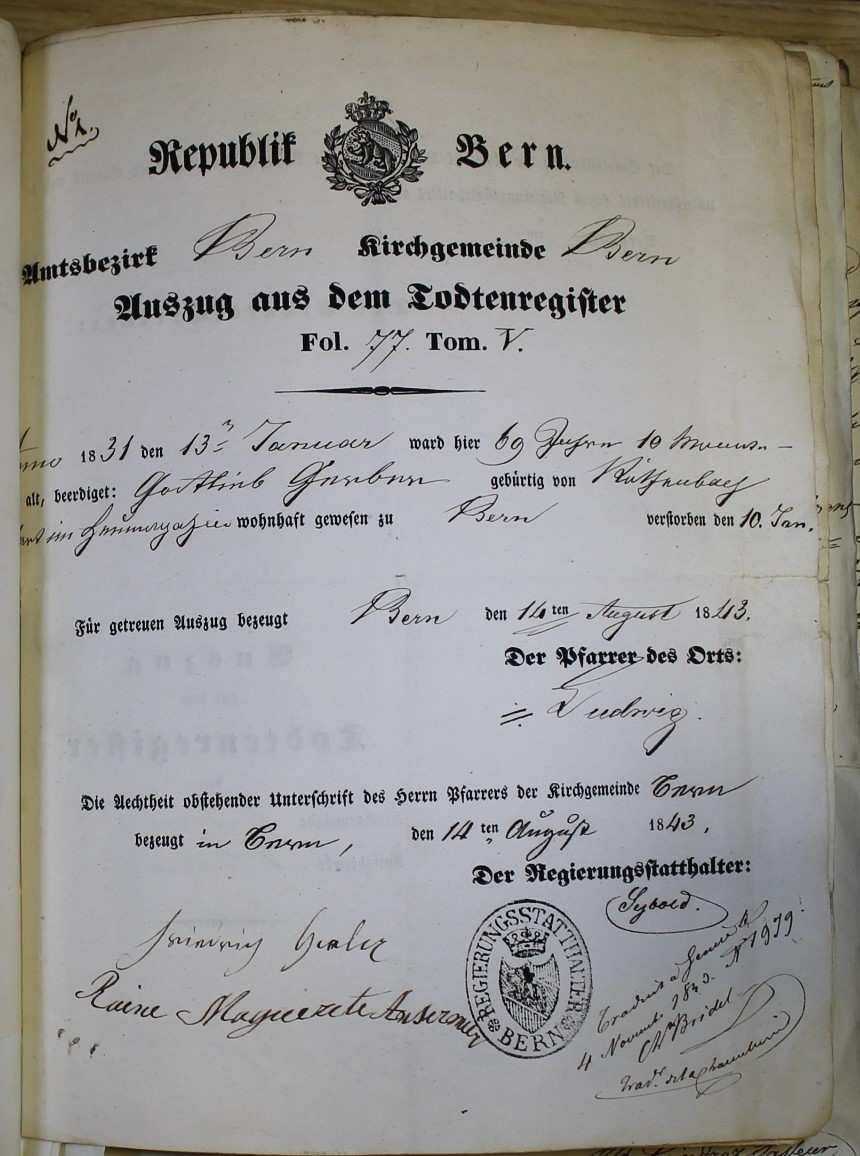 No 1.
Republik Bern.
Amtsbezirk Bern Kirchgemeinde Bern
Auszug aus dem Todtenregister
Fol. 77. Tom. V.
Anno 1831 den 13n Januar ward hier 69 Jahren 10 Monate
alt, beerdiget: Gottlieb Gerber gebürtig von Röthenbach
wohnhaft gewesen zu Bern verstorben den 10. Jan.
Für getreuen Auszug bezeugt Bern den 14ten August 1843.
Der Pfarrer des Orts:
Ludwig.
Die Aechtheit obstehender Unterschrift des Herrn Pfarrers der Kirchgemeinde Bern
bezeugt in Bern, den 14ten August 1843,
Der Regierungsstatthalter:
Friedrich
REGIERUNGSSTATTHALTER BERN
Traduit à Genève le
4 Novembre 1843. No 1979.
Ch. Bridel